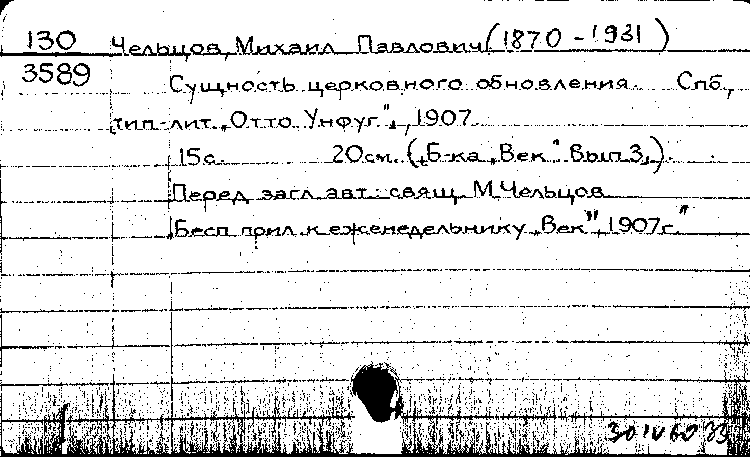 130 Чельцов, Михаил Павлович (1870-1931)
3589 Сущность церковного обновления. Спб.,
тип.-лит. "Отто Унфуг", 1907.
15с. 20см. ("Б-ка "Век". Вып. 3")
Перед загл. авт.: свящ. М. Чельцов
"Бесп. прил. к еженедельнику "Век", 1907г."